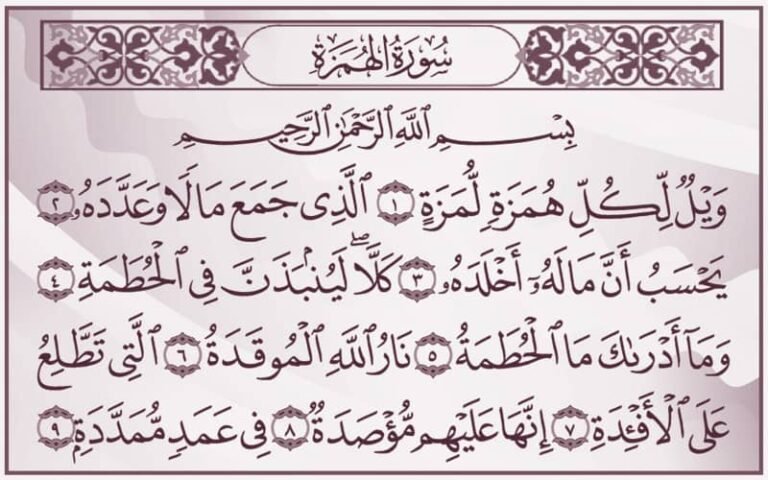 سُورَةُ الهُمَزَةِ
بِسۡمِ ٱللَّهِ ٱلرَّحۡمَٰنِ ٱلرَّحِيمِ
وَيۡلٞ لِّكُلِّ هُمَزَةٖ لُّمَزَةٍ ١ ٱلَّذِي جَمَعَ مَالٗا وَعَدَّدَهُۥ ٢
يَحۡسَبُ أَنَّ مَالَهُۥٓ أَخۡلَدَهُۥ ٣ كَلَّاۖ لَيُنۢبَذَنَّ فِي ٱلۡحُطَمَةِ ٤
وَمَآ أَدۡرَىٰكَ مَا ٱلۡحُطَمَةُ ٥ نَارُ ٱللَّهِ ٱلۡمُوقَدَةُ ٦ ٱلَّتِي تَطَّلِعُ
عَلَى ٱلۡأَفۡـِٔدَةِ ٧ إِنَّهَا عَلَيۡهِم مُّؤۡصَدَةٞ ٨ فِي عَمَدٖ مُّمَدَّدَةِۭ ٩